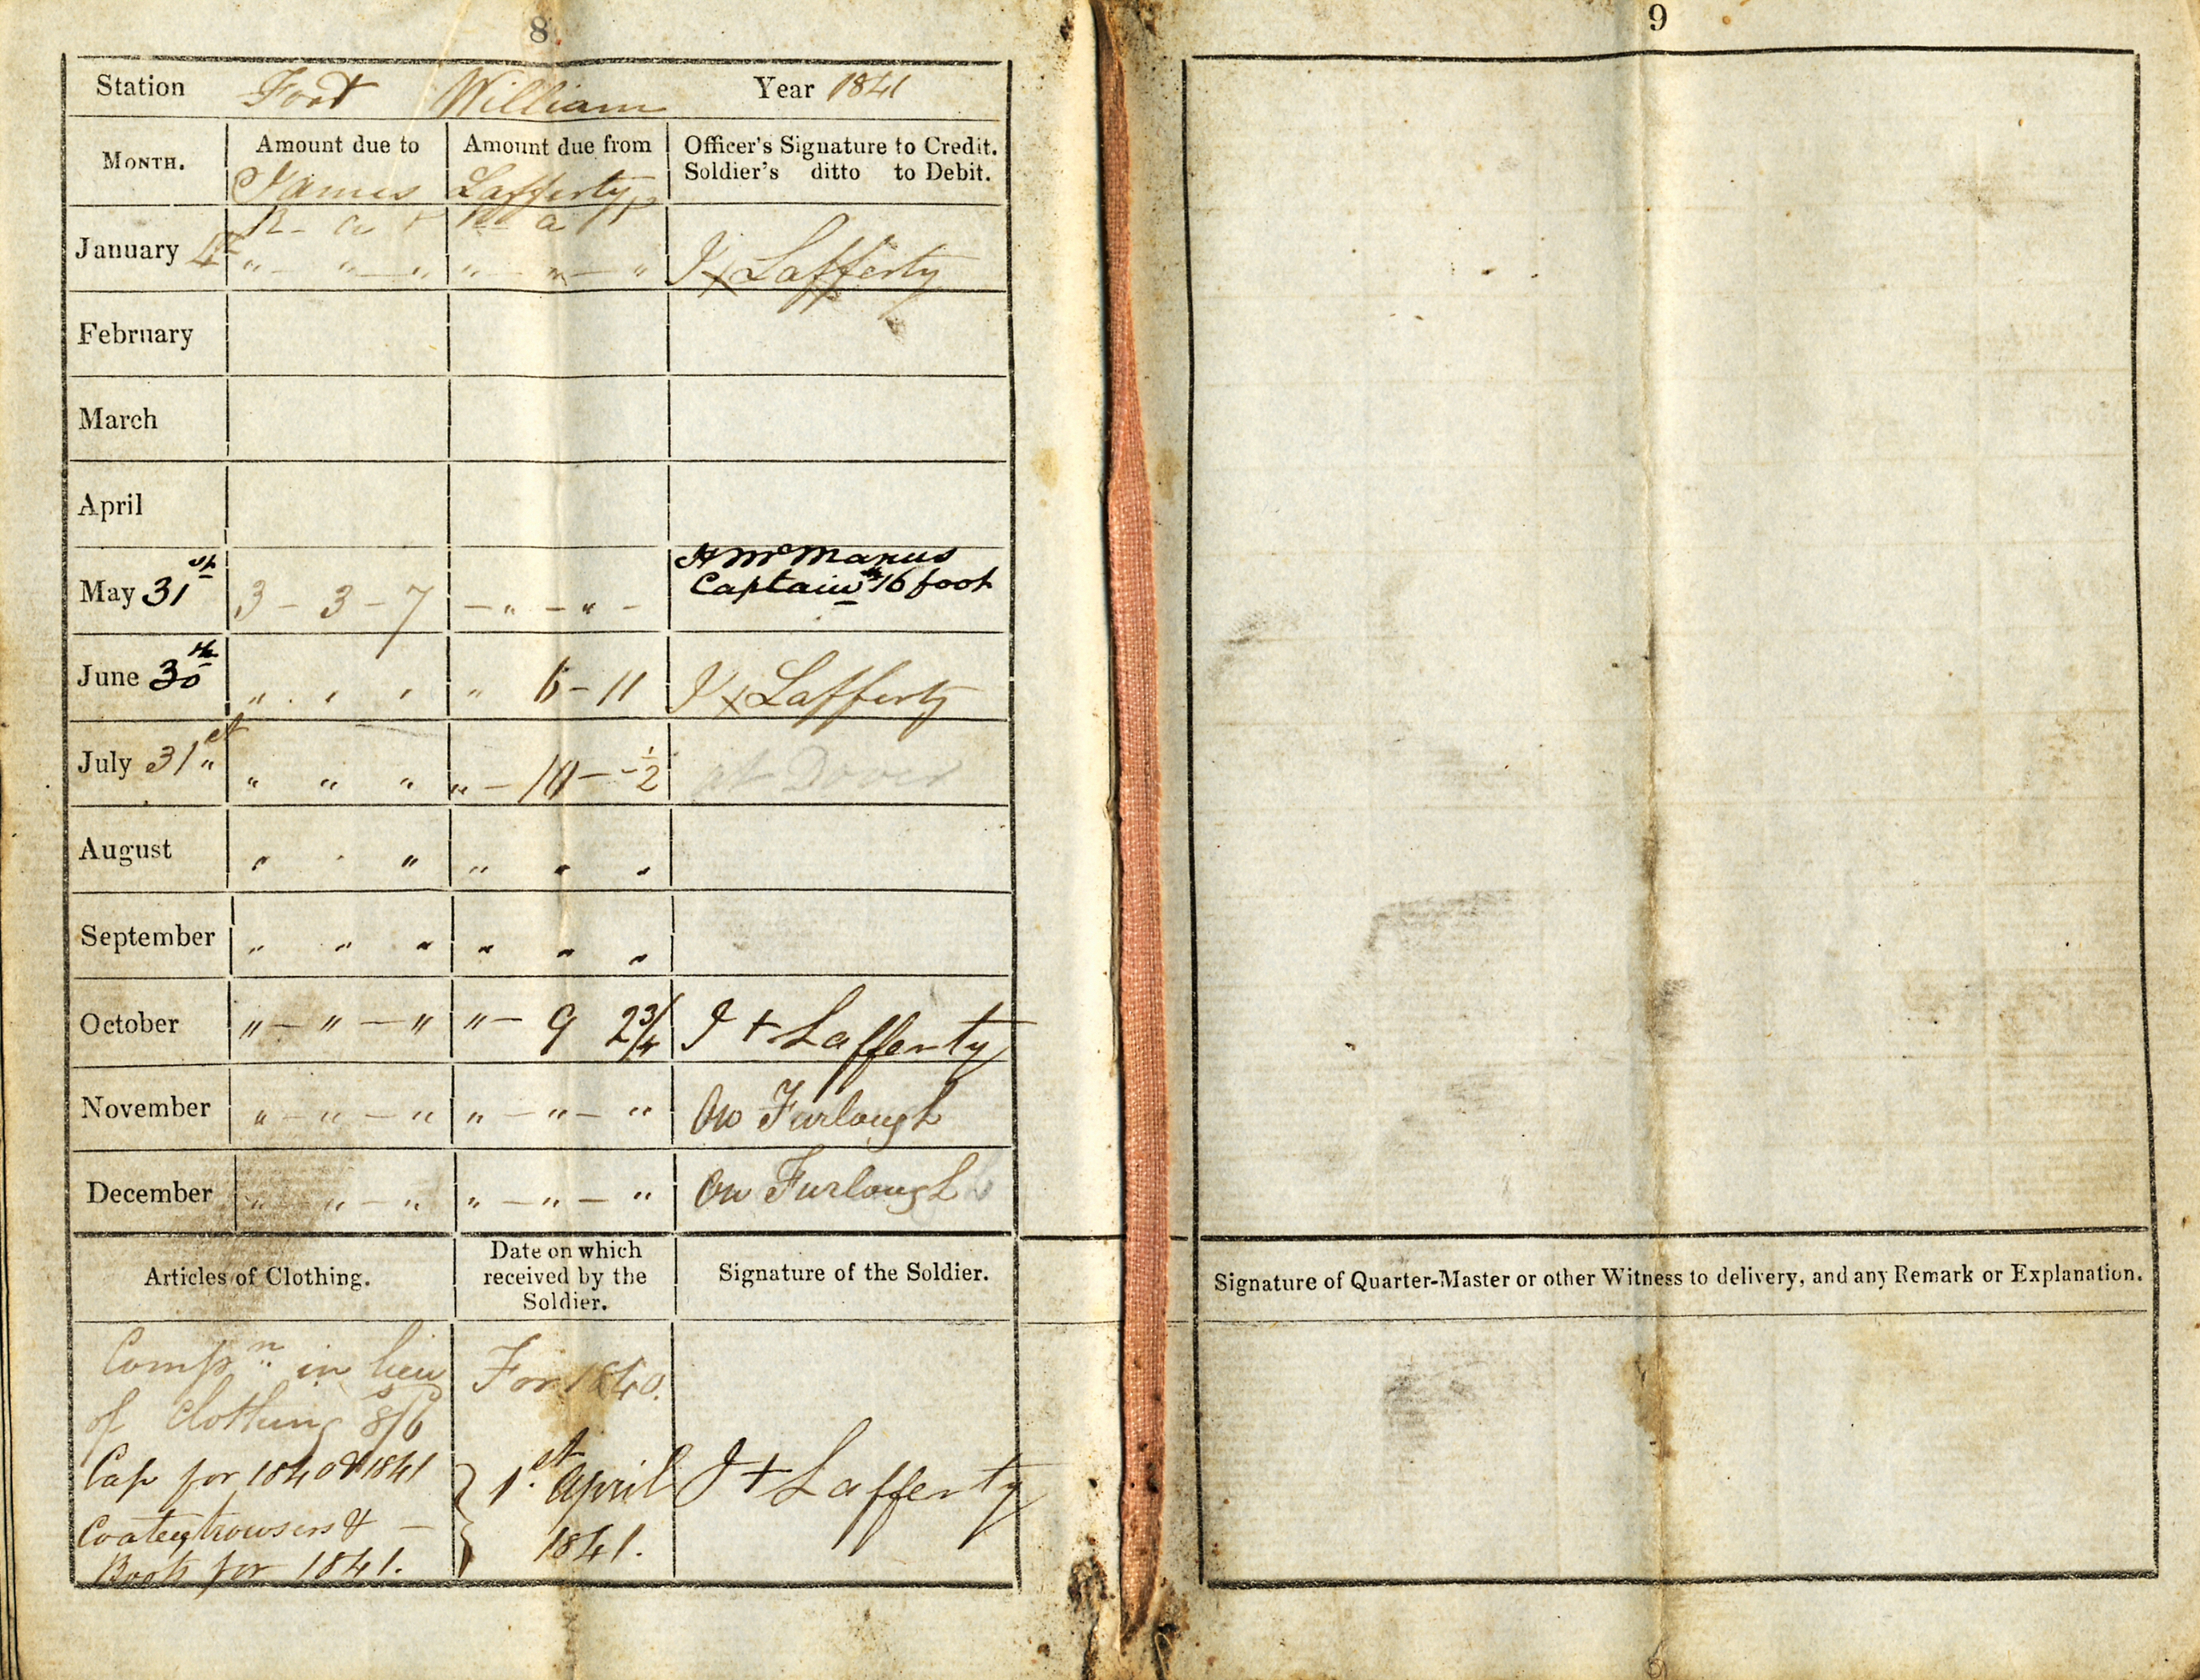 8
Station Fort William Year 1841
MONTH. Amount due to James Amount due from Lafferty Officer's Signature to Credit.
Soldier's ditto to Debit.
R - a
January 4th " - " - " " - " - " J x Lafferty
February
March
April
May 31st 3 - 3 - 7 - " - " - H McManus
Captain 16th foot
June 30th " " " " 6 - 11 J x Lafferty
July 31st " " " " - 10 - - 1/2 at Dover
August " " " " " "
September " " " " " "
October " - " - " " - 9 2 3/4 J + Lafferty
November " - " - " " - " - " On Furlough
December " - " - " " - " - " On Furlough
Articles of Clothing. Date on which
received by the
Soldier. Signature of the Soldier.
Compn in lieu
of Clothing 8s/6d For 1840.
Cap for 1840 & 1841
Coatee trowsers & -
Boots for 1841. } 1st April
1841. J + Lafferty
9
Signature of Quarter-Master or other Witness to delivery, and any Remark or Explanation.